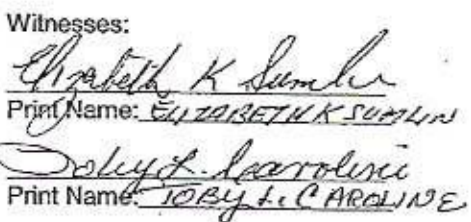 Witnesses:
Elizabeth K Sumlin
Print Name: ELIZABETH K SUMLIN
Toby L. Caroline
Print Name: TOBY L. CAROLINE